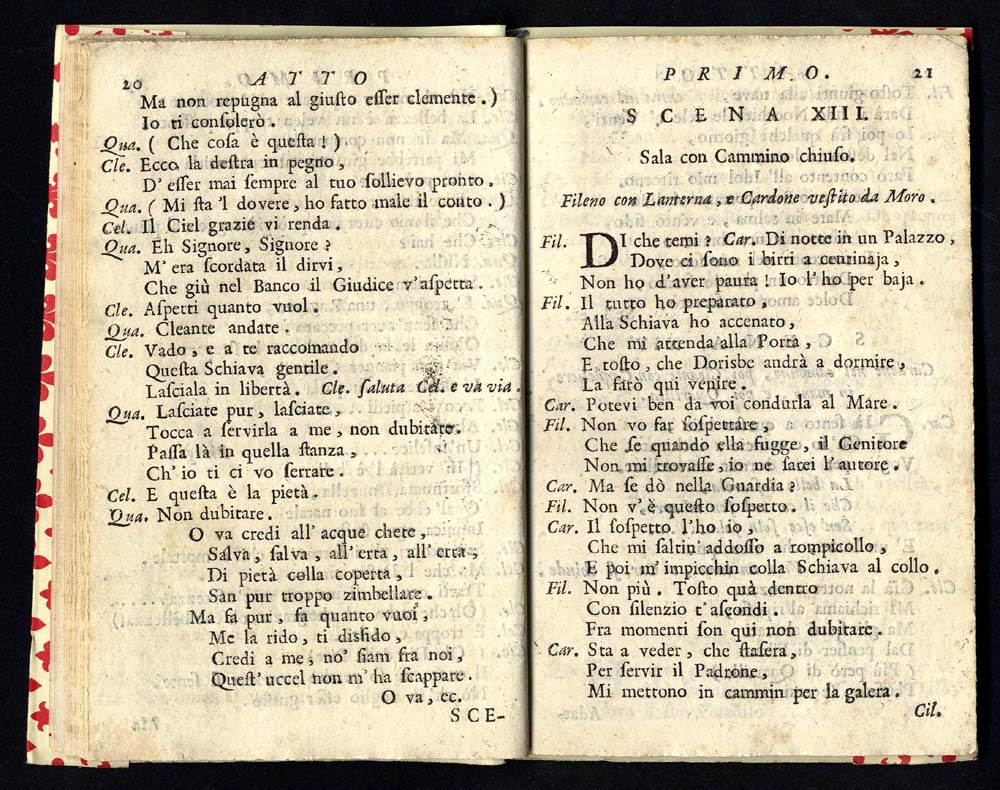 20 ATTO
Ma non repugna al giuſto eſſer clemente.)
Io ti conſolerò.
Qua. ( Che coſa è queſta! )
Cle. Ecco la deſtra in pegno,
D' eſſer mai ſempre al tuo ſollievo pronto.
Qua. ( Mi ſta 'l dovere, ho fatto male il conto. )
Cel. Il Ciel grazie vi renda.
Qua. Eh Signore, Signore?
M' era ſcordata il dirvi,
Che giù nel Banco il Giudice v' aſpetta.
Cle. Aſpetti quanto vuol.
Qua. Cleante andate.
Cle. Vado, e a te raccomando
Queſta Schiava gentile.
Laſciala in libertà. Cle. ſaluta Cel. e va via.
Qua. Laſciate pur, laſciate,
Tocca a ſervirla a me, non dubitate.
Paſſa là in quella ſtanza,
Ch' io ti ci vo ſerrare.
Cel. E queſta è la pietà.
Qua. Non dubitare.
O va credi all' acque chete,
Salva, ſalva, all' erta, all' erta,
Di pietà colla coperta,
San pur troppo zimbellare.
Ma fa pur, fa quanto vuoi,
Me la rido, ti disfido,
Credi a me, no' ſiam fra noi,
Queſt' uccel non m' ha ſcappare.
O va, ec.
SCE-
PRIMO. 21
SCENA XIII.
Sala con Cammino chiuſo.
Fileno con Lanterna, e Cardone veſtito da Moro.
Fil. DI che temi? Car. Di notte in un Palazzo,
Dove ci ſono i birri a centinaja,
Non ho d' aver paura! Io l' ho per baja.
Fil. Il tutto ho preparato.
Alla Schiava ho accenato,
Che mi attenda alla Porta,
E toſto, che Dorisbe andrà a dormire,
La farò qui venire.
Car. Potevi' ben da voi condurla al Mare.
Fil. Non vo far ſoſpettare.
Che ſe quando ella fugge, il Genitore
Non mi trovaſſe, io ne farei l' autore.
Car. Ma ſe dò nella Guardia?
Fil. Non v' è queſto ſoſpetto.
Car. Il ſoſpetto l' ho io,
Che mi ſaltin' addoſſo a rompicollo,
E poi m' impicchin colla Schiava al collo.
Fil. Non più. Toſto quà dentro
Con ſilenzio t' aſcondi.
Fra momenti ſon qui non dubitare.
Car. Sta a veder, che ſtaſera,
Per ſervir il Padrone,
Mi mettono in cammin per la galera.
Cil.